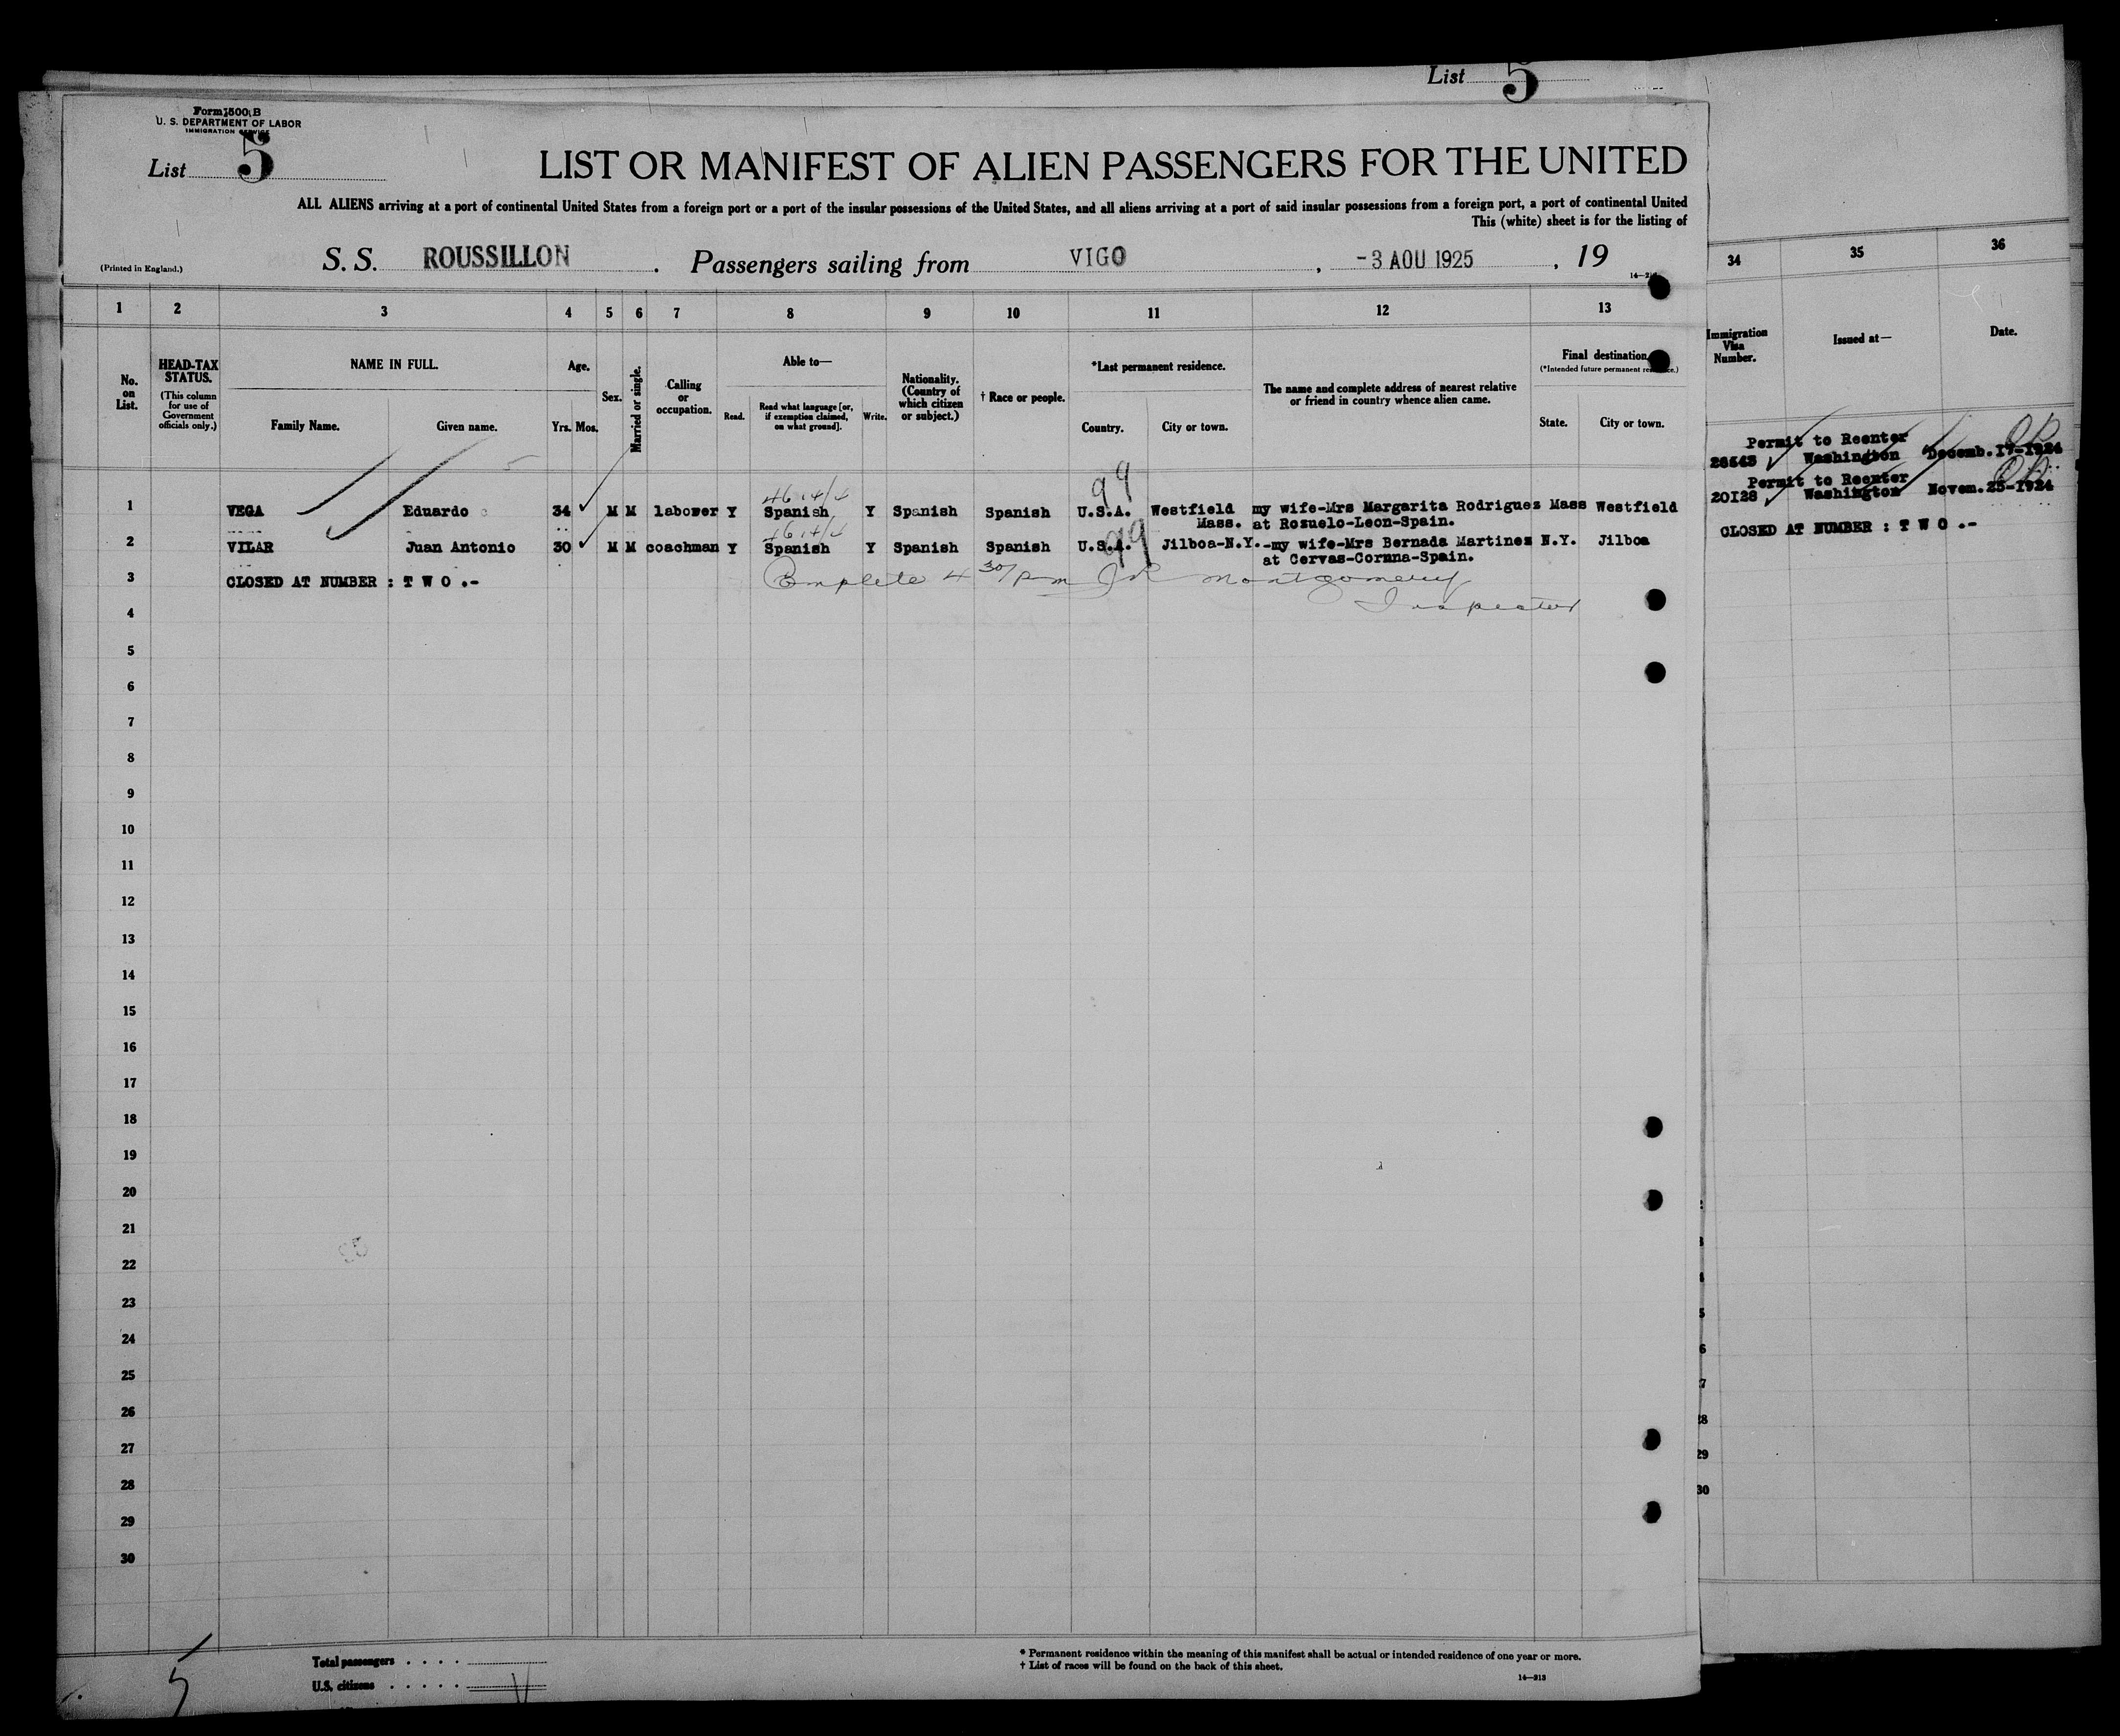 List 5
Form 500 B
U. S. DEPARTMENT OF LABOR
IMMIGRATION SERVICE
List 5
LIST OR MANIFEST OF ALIEN PASSENGERS FOR THE UNITED
ALL ALIENS arriving at a port of continental United States from a foreign port or a port of the insular possessions of the United States, and all aliens arriving at a port of said insular possessions from a foreign port, a port of continental United
This (white) sheet is for the listing of
(Printed in England.)
S. S. ROUSSILLON . Passengers sailing from VIGO , -3 AOU 1925 , 19
1 2 3 4 5 6 7 8 9 10 11 12 13
No. on List.
HEAD-TAX STATUS.
(This column for use of Government officials only.)
NAME IN FULL.
Family Name. Given name.
Age.
Yrs. Mos.
Sex.
Married or single.
Calling or occupation.
Able to—
Read. Read what language [or, if exemption claimed, on what ground]. Write.
Nationality. (Country of which citizen or subject.)
† Race or people.
*Last permanent residence.
Country. City or town.
The name and complete address of nearest relative or friend in country whence alien came.
Final destination.
(*Intended future permanent residence.)
State. City or town.
34 35 36
Immigration Visa Number.
Issued at—
Date.
99
1 VEGA Eduardo 34 M M laborer Y Spanish Y Spanish Spanish U.S.A. Westfield my wife-Mrs Margarita Rodrigues Mass Westfield
Mass. at Rozuelo-Leon-Spain.
99
2 VILAR Juan Antonio 30 M M coachman Y Spanish Y Spanish Spanish U.S.A. Jilboa-N.Y. -my wife-Mrs Bernada Martinez N.Y. Jilboa
at Cervas-Cornna-Spain.
3 CLOSED AT NUMBER : T W O .- Complete 4 30/pm J R Montgomery
Inspector
4
5
6
7
8
9
10
11
12
13
14
15
16
17
18
19
20
21
22
23
24
25
26
27
28
29
30
Permit to Reenter
28543 Washington Decemb.17-1924
Permit to Reenter
20128 Washington Novem.25-1924
CLOSED AT NUMBER : T W O .-
28
29
30
5
Total passengers . . . .
U.S. citizens . . . . .
* Permanent residence within the meaning of this manifest shall be actual or intended residence of one year or more.
† List of races will be found on the back of this sheet.
14—213